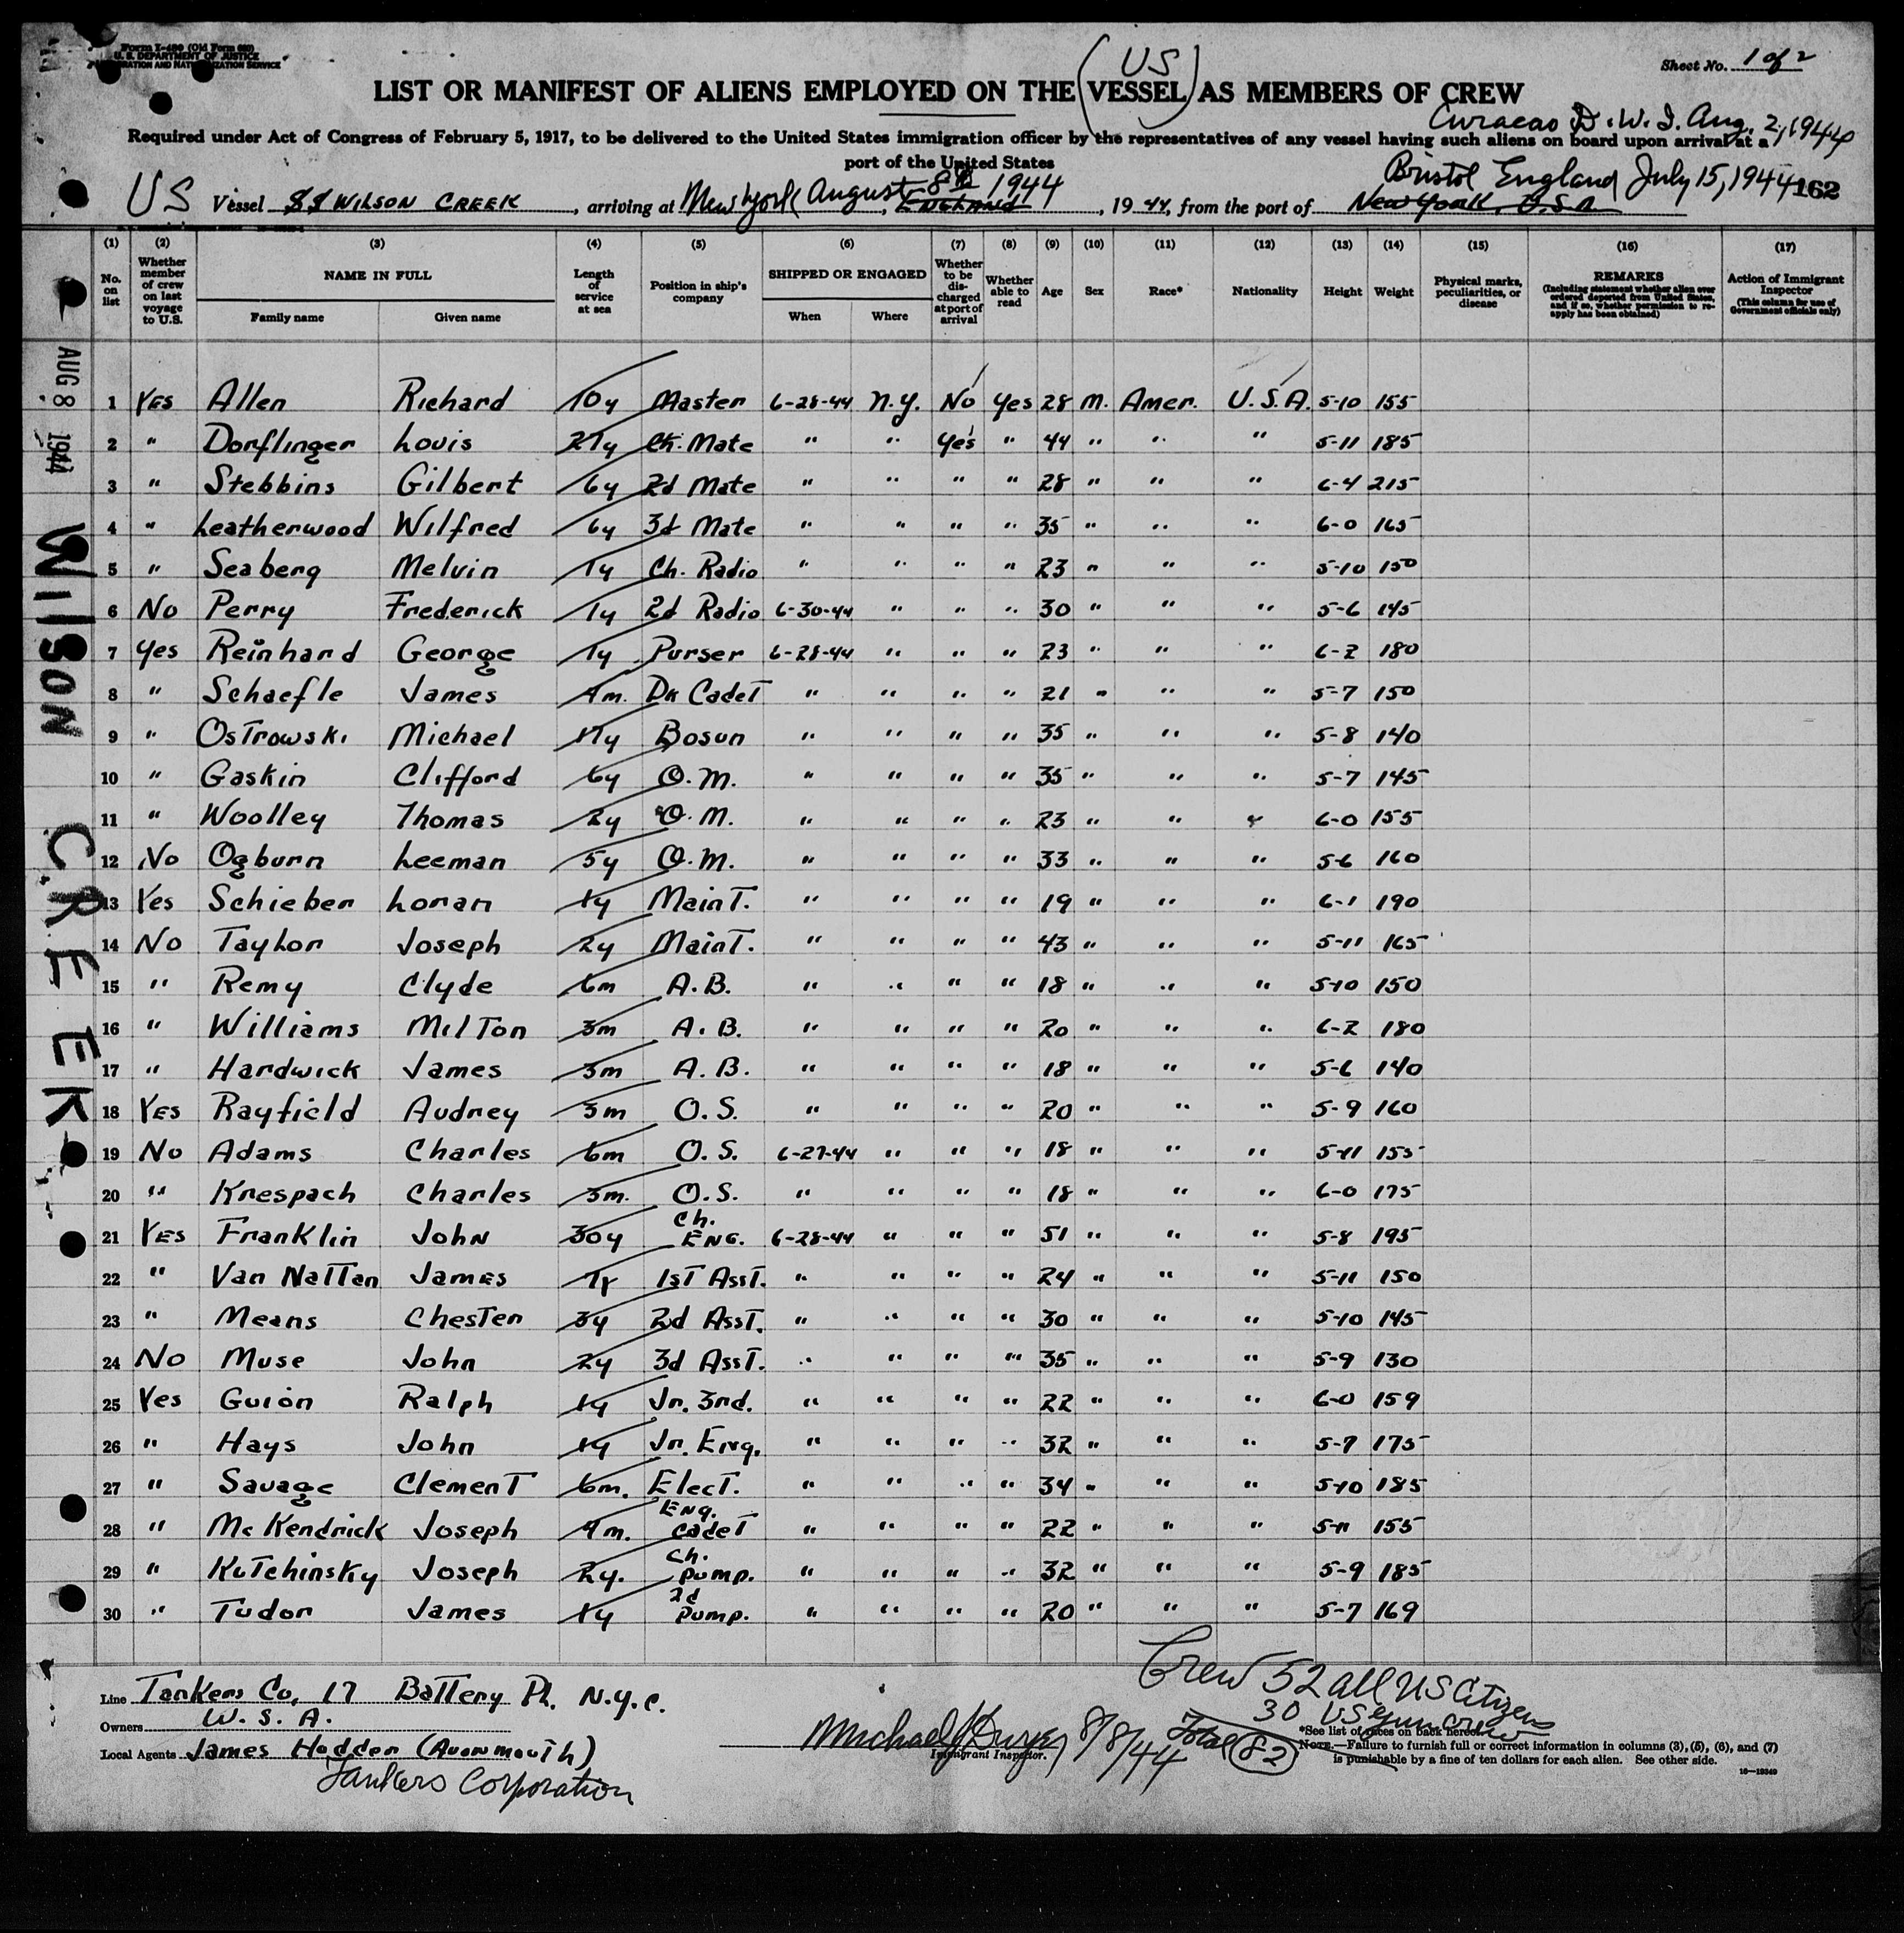 Form I-480 (Old Form 680)
U. S. DEPARTMENT OF JUSTICE
IMMIGRATION AND NATURALIZATION SERVICE
Sheet No. 1 of 2
(US)
LIST OR MANIFEST OF ALIENS EMPLOYED ON THE VESSEL AS MEMBERS OF CREW
Curacao D.W.I. Aug. 2, 1944
Required under Act of Congress of February 5, 1917, to be delivered to the United States immigration officer by the representatives of any vessel having such aliens on board upon arrival at a
port of the United States
Bristol England July 15, 1944 162
US Vessel SS WILSON CREEK, arriving at New York August 8th 1944 ENGLAND, 19 44, from the port of New York, U.S.A
(1) (2) (3) (4) (5) (6) (7) (8) (9) (10) (11) (12) (13) (14) (15) (16) (17)
No. on list Whether member of crew on last voyage to U.S. NAME IN FULL Family name Given name Length of service at sea Position in ship's company SHIPPED OR ENGAGED When Where Whether to be discharged at port of arrival Whether able to read Age Sex Race* Nationality Height Weight Physical marks, peculiarities, or disease REMARKS (Including statement whether alien ever ordered deported from United States, and if so, whether permission to reapply has been obtained) Action of Immigrant Inspector (This column for use of Government officials only)
AUG 8 1944
WILSON CREEK
1 YES Allen Richard 10y Master 6-28-44 N.Y. No Yes 28 M. Amer. U.S.A. 5-10 155
2 " Dorflinger Louis 27y Ch. Mate " " Yes " 44 " " " 5-11 185
3 " Stebbins Gilbert 6y 2d Mate " " " " 28 " " " 6-4 215
4 " Leatherwood Wilfred 6y 3d Mate " " " " 35 " " " 6-0 165
5 " Seaberg Melvin 1y Ch. Radio " " " " 23 " " " 5-10 150
6 No Perry Frederick 1y 2d Radio 6-30-44 " " " 30 " " " 5-6 145
7 Yes Reinhard George 1y Purser 6-28-44 " " " 23 " " " 6-2 180
8 " Schaefle James 4m. Dk Cadet " " " " 21 " " " 5-7 150
9 " Ostrowski Michael 17y Bosun " " " " 35 " " " 5-8 140
10 " Gaskin Clifford 6y Q.M. " " " " 35 " " " 5-7 145
11 " Woolley Thomas 2y Q.M. " " " " 23 " " " 6-0 155
12 No Ogburn Leeman 5y Q.M. " " " " 33 " " " 5-6 160
13 Yes Schieber Loran 1y Maint. " " " " 19 " " " 6-1 190
14 No Taylor Joseph 2y Maint. " " " " 43 " " " 5-11 165
15 " Remy Clyde 6m A.B. " " " " 18 " " " 5-10 150
16 " Williams Milton 3m A.B. " " " " 20 " " " 6-2 180
17 " Hardwick James 3m A.B. " " " " 18 " " " 5-6 140
18 YES Rayfield Audrey 3m O.S. " " " " 20 " " " 5-9 160
19 No Adams Charles 6m O.S. 6-27-44 " " " 18 " " " 5-11 155
20 " Krespach Charles 3m. O.S. " " " " 18 " " " 6-0 175
21 YES Franklin John 30y Ch. ENG. 6-28-44 " " " 51 " " " 5-8 195
22 " Van Nattan James 7y 1st Asst. " " " " 24 " " " 5-11 150
23 " Means Chester 3y 2d Asst. " " " " 30 " " " 5-10 145
24 No Muse John 2y 3d Asst. " " " " 35 " " " 5-9 130
25 Yes Guion Ralph 1y Jr. 3rd. " " " " 22 " " " 6-0 159
26 " Hays John 1y Jr. Eng. " " " " 32 " " " 5-7 175
27 " Savage Clement 6m. Elect. " " " " 34 " " " 5-10 185
28 " McKendrick Joseph 4m. Eng. Cadet " " " " 22 " " " 5-11 155
29 " Kutchinsky Joseph 2y. Ch. Pump. " " " " 32 " " " 5-9 185
30 " Tudor James 1y 2d Pump. " " " " 20 " " " 5-7 169
Crew 52 all US Citizens
30 US gun crew
Total 82
Line Tankers Co, 17 Battery Pl. N.Y.C.
Owners W. S. A.
Local Agents James Hodder (Avonmouth)
Tankers Corporation
Michael J Dwyer 8/8/44
Immigrant Inspector.
*See list of races on back hereof.
NOTE.—Failure to furnish full or correct information in columns (3), (5), (6), and (7)
is punishable by a fine of ten dollars for each alien. See other side.